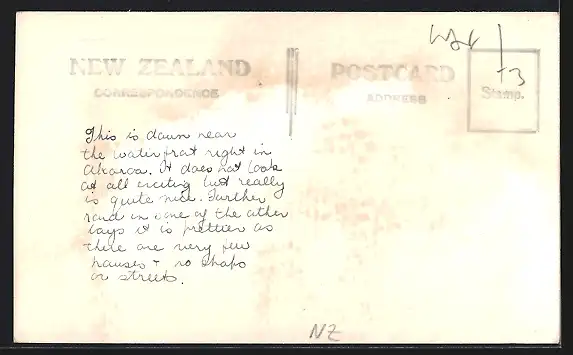 NEW ZEALAND
CORRESPONDENCE
POSTCARD
ADDRESS
Stamp.
13
This is down near
the waterfront right in
Akaroa. It does not look
at all exciting but really
is quite nice. Further
round in one of the other
bays it is prettier as
there are very few
houses + no shops
or streets.
NZ